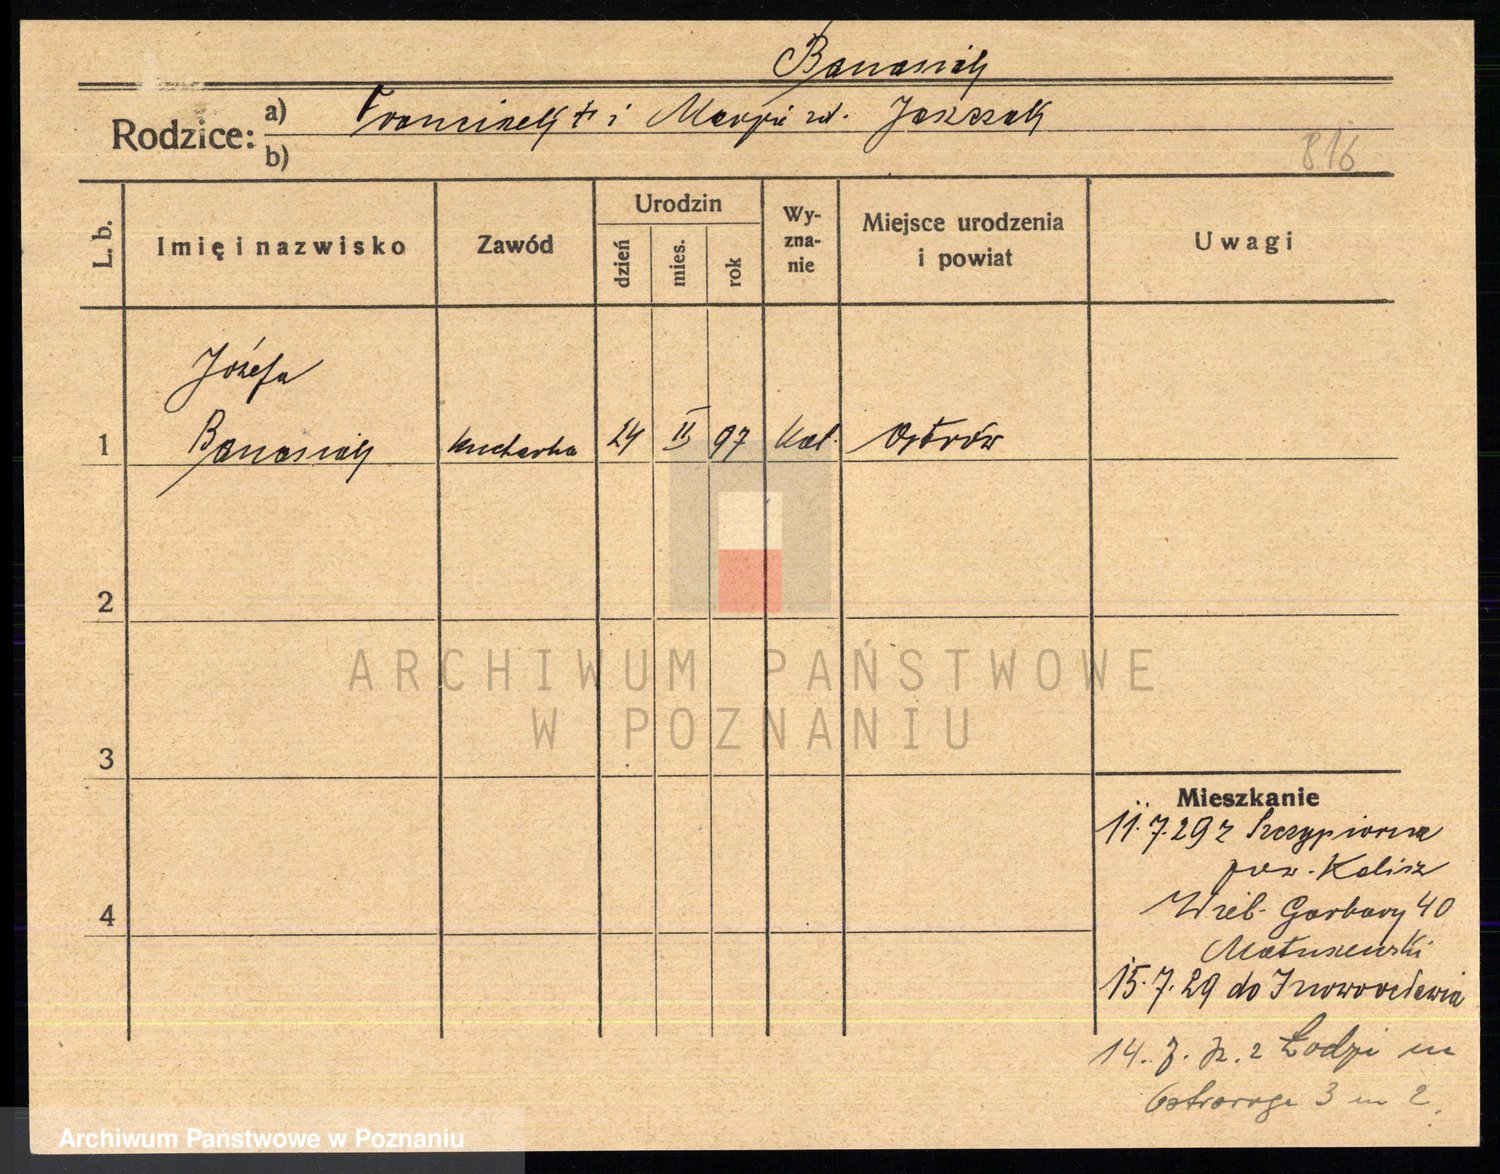 Banasiak
Rodzice: a) Franciszek † i Marji zd. Jaszczak
b)
816
L. b.
Imię i nazwisko
Zawód
Urodzin
dzień
mies.
rok
Wy-
zna-
nie
Miejsce urodzenia
i powiat
Uwagi
Józefa
1 Banasiak kucharka 24 II 97 kat. Ostrów
2
3
4
ARCHIWUM PAŃSTWOWE
W POZNANIU
Mieszkanie
11.7.29 z Szczypiorna
pow. Kalisz
Wielk. Garbary 40
Matuszewski
15.7.29 do Inowrocławia
14. z Łodzi m
Ostroroga 3 m 2.
Archiwum Państwowe w Poznaniu